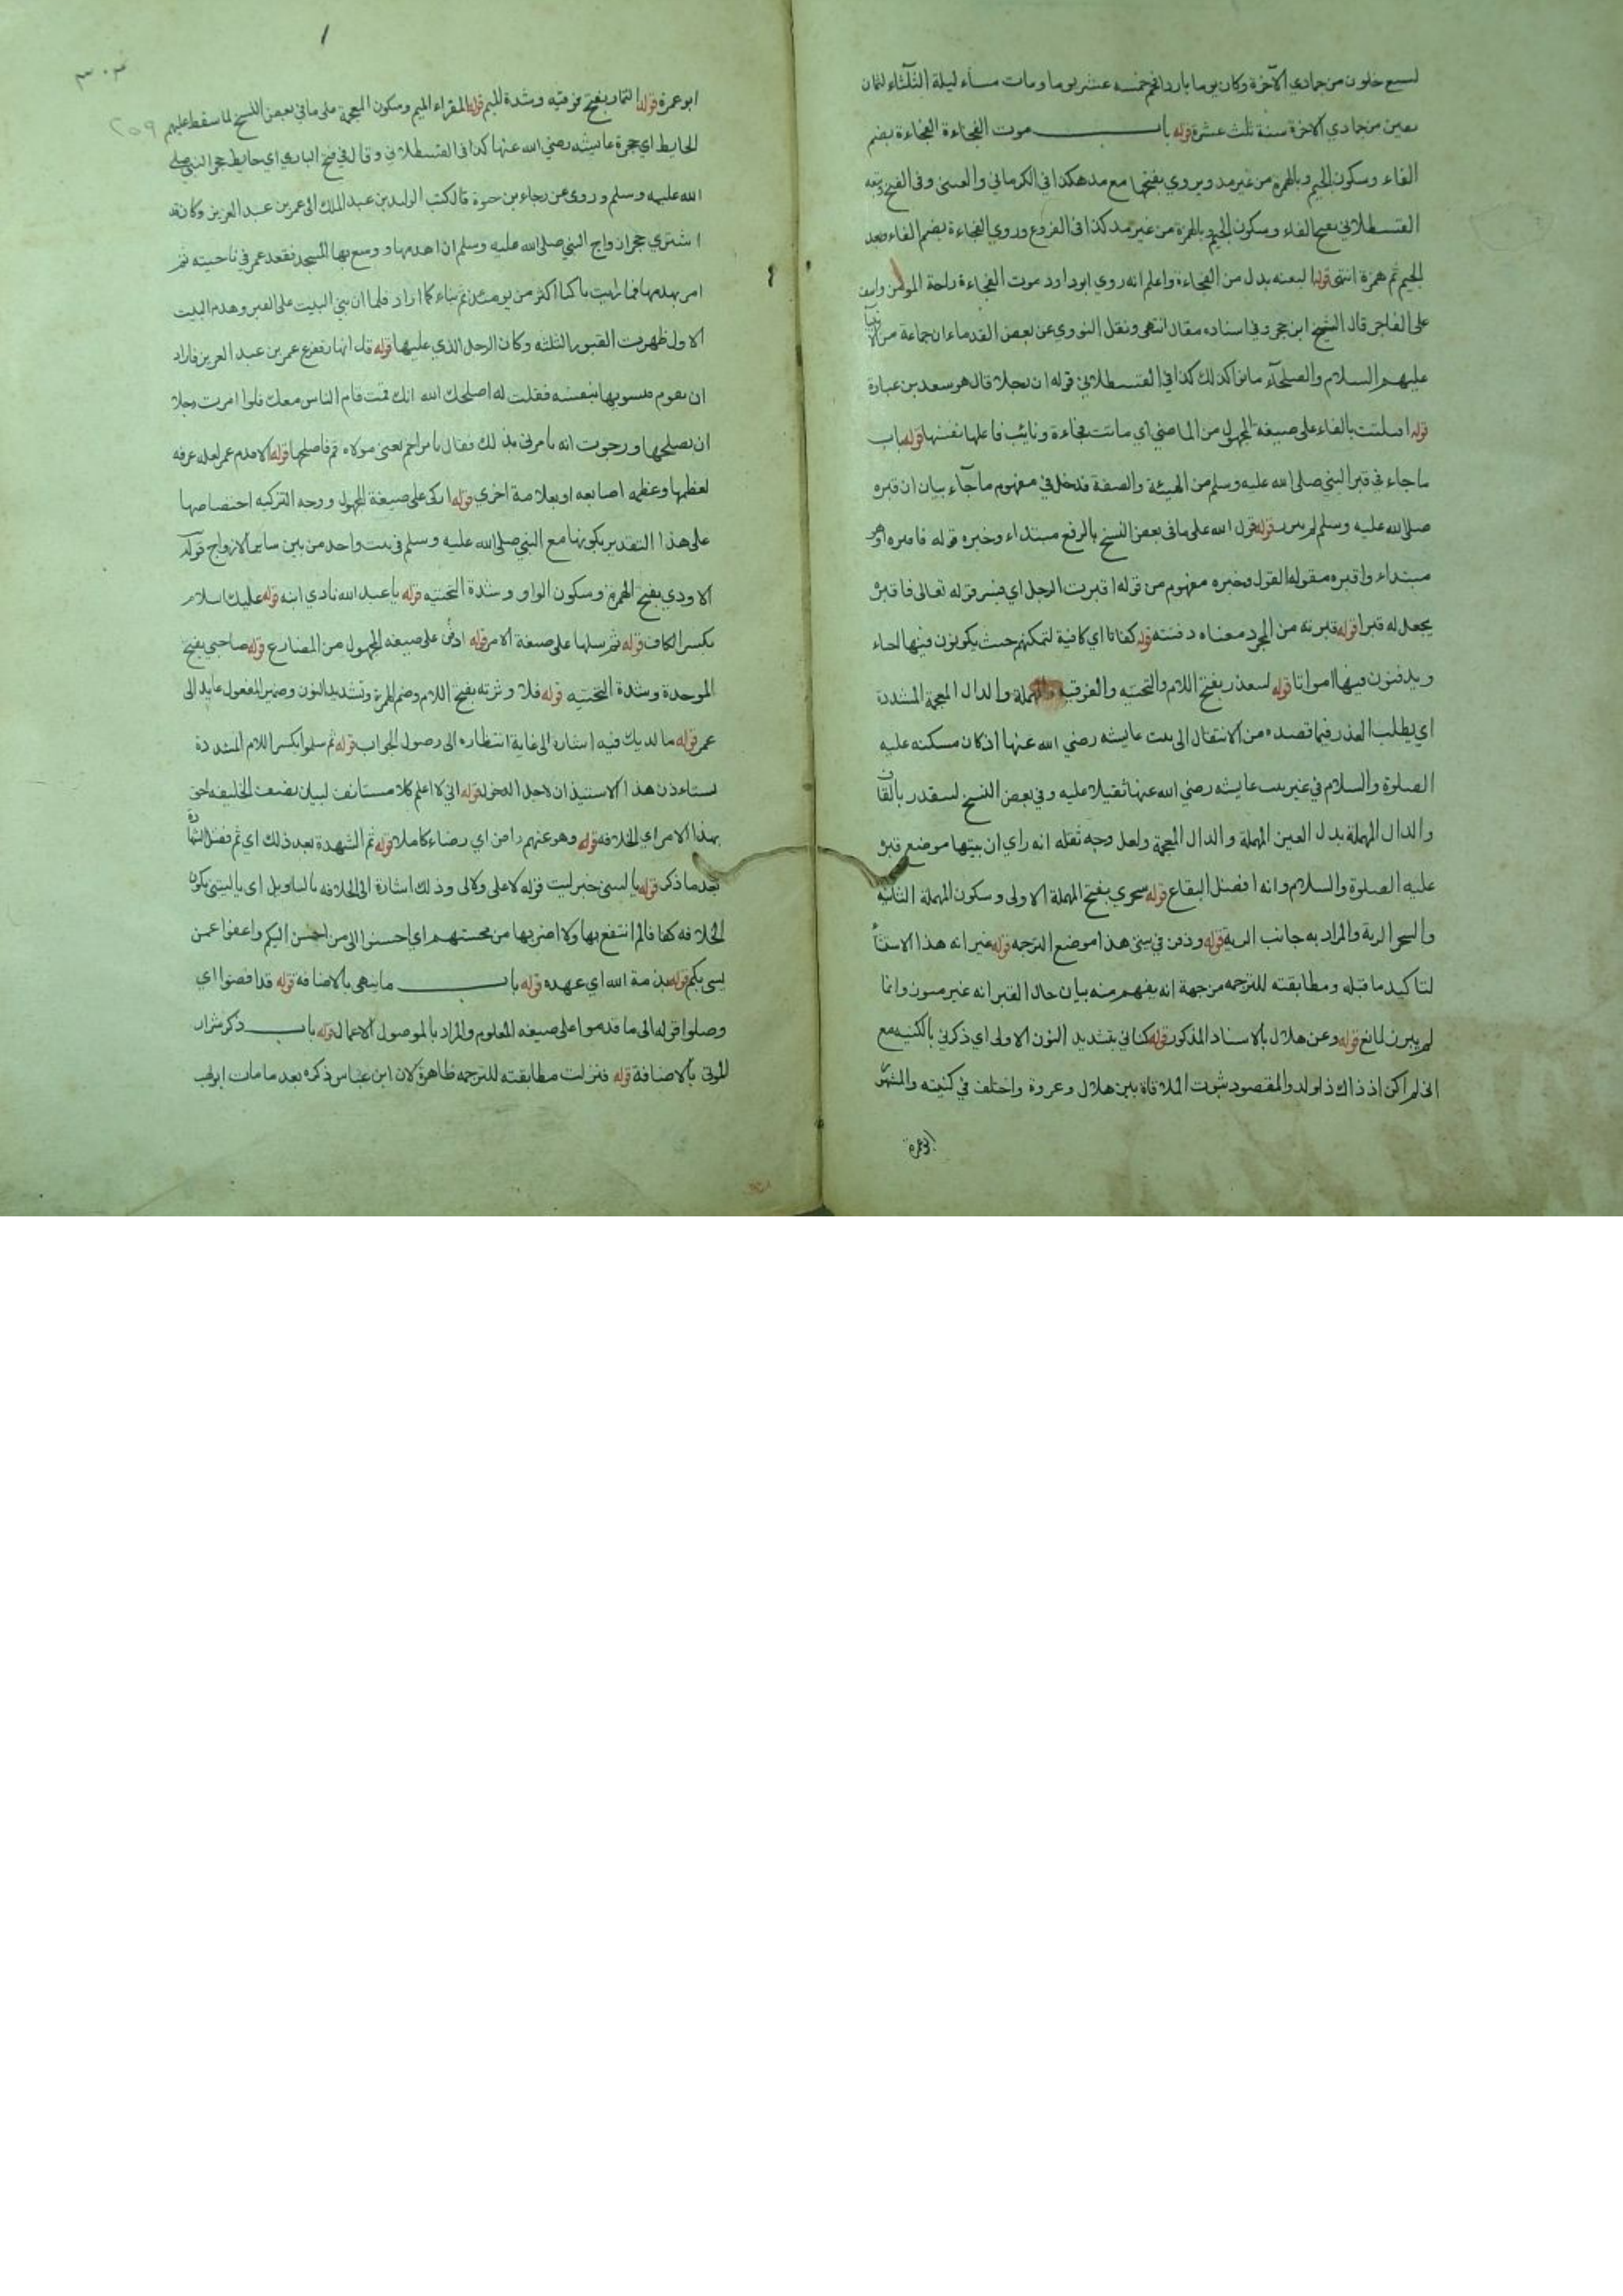 لسبع خلون من جمادي الآخرة وكان يوما باردا فحم خمسة عشر يوما ومات مساء ليلة الثلثاء لثمان
بقين من جمادي الاخرة سنة ثلث عشرة قوله باب موت الفجاءة الفجاءة بضم
الفاء وسكون الجيم وبالهمزة من غير مد ويروي بفتحها مع مد هكذا في الكرماني والعيني وفى الفتح وتبعه
القسطلاني بفتح الفاء وسكون الجيم وبالهمزة من غير مد كذا فى الفروع وروي الفجاءة بضم الفاء وبعد
الجيم ثم همزة انتهى قوله البغته بدل من الفجاءة واعلم انه روي ابو داود موت الفجاءة راحة المؤمن واسف
على الفاجر قال الشيخ ابن حجر وفي اسناده مقال انتهى ونقل النووي عن بعض القدماء ان جماعة من الانبيآ
عليهم السلام والصلحآء ماتوا كذلك كذا في القسطلاني قوله ان رجلا قال هو سعد بن عبادة
قوله افتلتت بالفاء على صيغة المجهول من الماضي اي ماتت فجاءة ونايب فاعلها نفسها قوله باب
ما جاء في قبر النبي صلى الله عليه وسلم من الهيئة والصفة فدخل في مفهوم ما جآء بيان ان قبره
صلى الله عليه وسلم لم يبرز قوله قول الله على ما فى بعض النسخ بالرفع مبتداء وخبره قوله فاقبره او هو
مبتداء واقبره مقوله القول وخبره مفهوم من قوله اقبرت الرجل اي فسر قوله تعالى فاقبره
يجعل له قبرا قوله قبرته من المجرد معناه دفنته قوله كفاتا اي كافية لتمكنهم حيث يكونون فيها احياء
ويدفنون فيها امواتا قوله ليتعذر بفتح اللام والتحتيه والفوقيه والمهملة والدال المعجمة المشددة
اي يطلب العذر فيما قصده من الانتقال الى بيت عايشه رضي الله عنها اذ كان مسكنه عليه
الصلوة والسلام في غير بيت عايشه رضي الله عنها ثقيلا عليه وفي بعض النسخ ليتقدر بالقاف
والدال المهملة بدل العين المهملة والدال المعجمة ولعل وجه ثقله انه راي ان بيتها موضع قبره
عليه الصلوة والسلام وانه افضل البقاع قوله سحري بفتح المهملة الاولى وسكون المهملة الثانيه
والسحر الرية والمراد به جانب الرية قوله ودفن في بيتي هذا موضع الترجمه قوله غير انه هذا الاستثناء
لتاكيد ما قبله ومطابقته للترجمه من جهة انه يفهم منه بيان حال القبر انه غير مسون وانما
لم يبرز لمانع قوله وعن هلال بالاسناد المذكور قوله كناني بتشديد النون الاولى اي ذكرني بالكنيه مع
انى لم اكن اذ ذاك ذا ولد والمقصود ثبوت الملاقاة بين هلال وعروة واختلف في كنيته والمشهور
ابو عمرة
٣٠٣
٢٥٩
ابو عمرة قوله التمار بفتح فوقيه وشدة الميم قوله المقراء الميم وسكون المعجمة على ما في بعض النسخ لما سقط عليهم
الحايط اي حجرة عايشه رضي الله عنها كذا فى القسطلاني وقال في فتح الباري اي حايط حجر النبي صلى
الله عليه وسلم وروى عن رجاء بن حيوة قال كتب الوليد بن عبد الملك الى عمر بن عبد العزيز وكان قد
اشتري حجر ازواج النبي صلى الله عليه وسلم ان اهدمها ووسع بها المسجد فقعد عمر في ناحيته ثم
امر بهدمها فما رايت باكيا اكثر من يومئذ ثم بناء كما اراد فلما ان بني البيت على القبر وهدم البيت
الاول ظهرت القبور الثلثه وكان الرمل الذي عليها قوله قد انهار ففزع عمر بن عبد العزيز فاراد
ان يقوم فيسويها بنفسه فقلت له اصلحك الله انك قمت قام الناس معك فلوا امرت رجلا
ان يصلحها ورجوت انه يامرني بذلك فقال يا مزاحم يعني مولاه قم فاصلحها قوله الا قدم عمر لعله عرفه
لعظمها وعظم اصابعه او بعلامة اخري قوله ازكى على صيغة المجهول ووجه التزكيه اختصاصها
على هذا التقدير بكونها مع النبي صلى الله عليه وسلم في بيت واحد من بين ساير الازواج قوله
الاودي بفتح الهمزة وسكون الواو وشدة التحتيه قوله يا عبد الله نادي ابنه قوله عليك السلام
بكسر الكاف قوله ثم سلها على صيغة الامر قوله ادفن على صيغه المجهول من المضارع قوله صاحبي بفتح
الموحدة وشدة التحتيه قوله فلاوثرته بفتح اللام وضم الهمزة وتشديد النون وضمير المفعول عايد الى
عمر قوله ما لديك فيه اشارة الى غاية انتظاره الى وصول الجواب قوله ثم سلوا بكسر اللام المشددة
يستاءذن هذا الاستيذان لاجل الدخول قوله اني لا اعلم كلام مستانف لبيان يضعف الخليفه احق
بهذا الامر اي الخلافه قوله وهو عنهم راض اي رضاء كاملا قوله ثم الشهدة بعد ذلك اي ثم فضل الشهادة
بعد ما ذكر قوله يا ليتني خبر ليت قوله لا علي ولا لي وذلك اشارة الى الخلافه بالتاويل اي يا ليتني يكون
الخلافه كفافا لم انتفع بها ولا اضر بها من محسنهم اي احسنوا الى من احسن اليكم واعفوا عمن
يسي بكم قوله بذمة الله اي عهده قوله باب ما ينهى بالاضافه قوله قد افضوا اي
وصلوا قوله الى ما قدموا على صيغه المعلوم والمراد بالموصول الاعمال قوله باب ذكر شرار
الموتى بالاضافة قوله فنزلت مطابقته للترجمه ظاهرة لان ابن عباس ذكره بعد ما مات ابو لهب